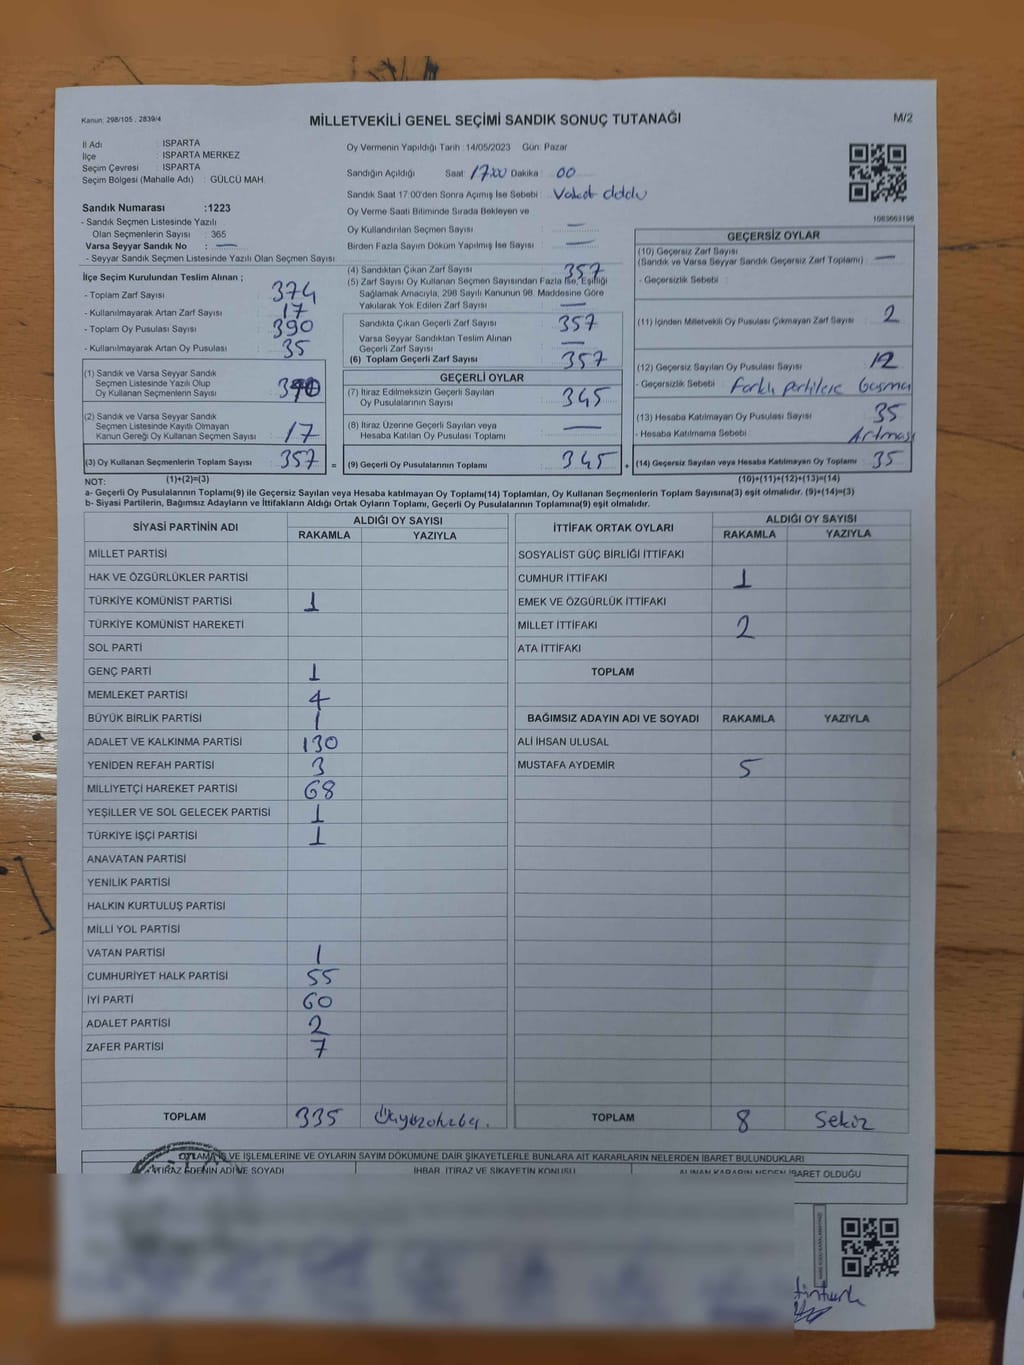 Kanun: 298/105 , 2839/4
MİLLETVEKİLİ GENEL SEÇİMİ SANDIK SONUÇ TUTANAĞI
M/2
İl Adı : ISPARTA
İlçe : ISPARTA MERKEZ
Seçim Çevresi : ISPARTA
Seçim Bölgesi (Mahalle Adı) : GÜLCÜ MAH.
Sandık Numarası :1223
- Sandık Seçmen Listesinde Yazılı
Olan Seçmenlerin Sayısı : 365
Varsa Seyyar Sandık No : —
- Seyyar Sandık Seçmen Listesinde Yazılı Olan Seçmen Sayısı
Oy Vermenin Yapıldığı Tarih :14/05/2023 Gün: Pazar
Sandığın Açıldığı Saat: 17:00 Dakika : 00
Sandık Saat 17:00'den Sonra Açımış İse Sebebi : Vakit doldu
Oy Verme Saati Bitiminde Sırada Bekleyen ve
Oy Kullandırılan Seçmen Sayısı : —
Birden Fazla Sayım Döküm Yapılmış İse Sayısı : —
1083663198
İlçe Seçim Kurulundan Teslim Alınan ;
- Toplam Zarf Sayısı : 374
- Kullanılmayarak Artan Zarf Sayısı : 17
- Toplam Oy Pusulası Sayısı : 390
- Kullanılmayarak Artan Oy Pusulası : 35
(1) Sandık ve Varsa Seyyar Sandık
Seçmen Listesinde Yazılı Olup
Oy Kullanan Seçmenlerin Sayısı :
(2) Sandık ve Varsa Seyyar Sandık
Seçmen Listesinde Kayıtlı Olmayan
Kanun Gereği Oy Kullanan Seçmen Sayısı : 17
(3) Oy Kullanan Seçmenlerin Toplam Sayısı : 357
(1)+(2)=(3)
(4) Sandıktan Çıkan Zarf Sayısı : 357
(5) Zarf Sayısı Oy Kullanan Seçmen Sayısından Fazla İse, Eşitliği
Sağlamak Amacıyla, 298 Sayılı Kanunun 98. Maddesine Göre
Yakılarak Yok Edilen Zarf Sayısı : —
Sandıkta Çıkan Geçerli Zarf Sayısı : 357
Varsa Seyyar Sandıktan Teslim Alınan
Geçerli Zarf Sayısı : —
(6) Toplam Geçerli Zarf Sayısı : 357
GEÇERLİ OYLAR
(7) İtiraz Edilmeksizin Geçerli Sayılan
Oy Pusulalarının Sayısı : 345
(8) İtiraz Üzerine Geçerli Sayılan veya
Hesaba Katılan Oy Pusulası Toplamı : —
= (9) Geçerli Oy Pusulalarının Toplamı : 345 +
GEÇERSİZ OYLAR
(10) Geçersiz Zarf Sayısı
(Sandık ve Varsa Seyyar Sandık Geçersiz Zarf Toplamı) : —
- Geçersizlik Sebebi :
(11) İçinden Milletvekili Oy Pusulası Çıkmayan Zarf Sayısı : 2
(12) Geçersiz Sayılan Oy Pusulası Sayısı : 12
- Geçersizlik Sebebi : Farklı partilere basma
(13) Hesaba Katılmayan Oy Pusulası Sayısı : 35
- Hesaba Katılmama Sebebi : Artması
(14) Geçersiz Sayılan veya Hesaba Katılmayan Oy Toplamı : 35
(10)+(11)+(12)+(13)=(14)
NOT:
a- Geçerli Oy Pusulalarının Toplamı(9) ile Geçersiz Sayılan veya Hesaba katılmayan Oy Toplamı(14) Toplamları, Oy Kullanan Seçmenlerin Toplam Sayısına(3) eşit olmalıdır. (9)+(14)=(3)
b- Siyasi Partilerin, Bağımsız Adayların ve İttifakların Aldığı Ortak Oyların Toplamı, Geçerli Oy Pusulalarının Toplamına(9) eşit olmalıdır.
SİYASİ PARTİNİN ADI ALDIĞI OY SAYISI
RAKAMLA YAZIYLA
MİLLET PARTİSİ
HAK VE ÖZGÜRLÜKLER PARTİSİ
TÜRKİYE KOMÜNİST PARTİSİ 1
TÜRKİYE KOMÜNİST HAREKETİ
SOL PARTİ
GENÇ PARTİ 1
MEMLEKET PARTİSİ 4
BÜYÜK BİRLİK PARTİSİ 1
ADALET VE KALKINMA PARTİSİ 130
YENİDEN REFAH PARTİSİ 3
MİLLİYETÇİ HAREKET PARTİSİ 68
YEŞİLLER VE SOL GELECEK PARTİSİ 1
TÜRKİYE İŞÇİ PARTİSİ 1
ANAVATAN PARTİSİ
YENİLİK PARTİSİ
HALKIN KURTULUŞ PARTİSİ
MİLLİ YOL PARTİSİ
VATAN PARTİSİ 1
CUMHURİYET HALK PARTİSİ 55
İYİ PARTİ 60
ADALET PARTİSİ 2
ZAFER PARTİSİ 7
TOPLAM 335
İTTİFAK ORTAK OYLARI ALDIĞI OY SAYISI
RAKAMLA YAZIYLA
SOSYALİST GÜÇ BİRLİĞİ İTTİFAKI
CUMHUR İTTİFAKI 1
EMEK VE ÖZGÜRLÜK İTTİFAKI
MİLLET İTTİFAKI 2
ATA İTTİFAKI
TOPLAM
BAĞIMSIZ ADAYIN ADI VE SOYADI RAKAMLA YAZIYLA
ALİ İHSAN ULUSAL
MUSTAFA AYDEMİR 5
TOPLAM 8 Sekiz
OYLAMA İŞ VE İŞLEMLERİNE VE OYLARIN SAYIM DÖKÜMÜNE DAİR ŞİKAYETLERLE BUNLARA AİT KARARLARIN NELERDEN İBARET BULUNDUKLARI
İTİRAZ EDENİN ADI VE SOYADI İHBAR, İTİRAZ VE ŞİKAYETİN KONUSU ALINAN KARARIN NEDEN İBARET OLDUĞU